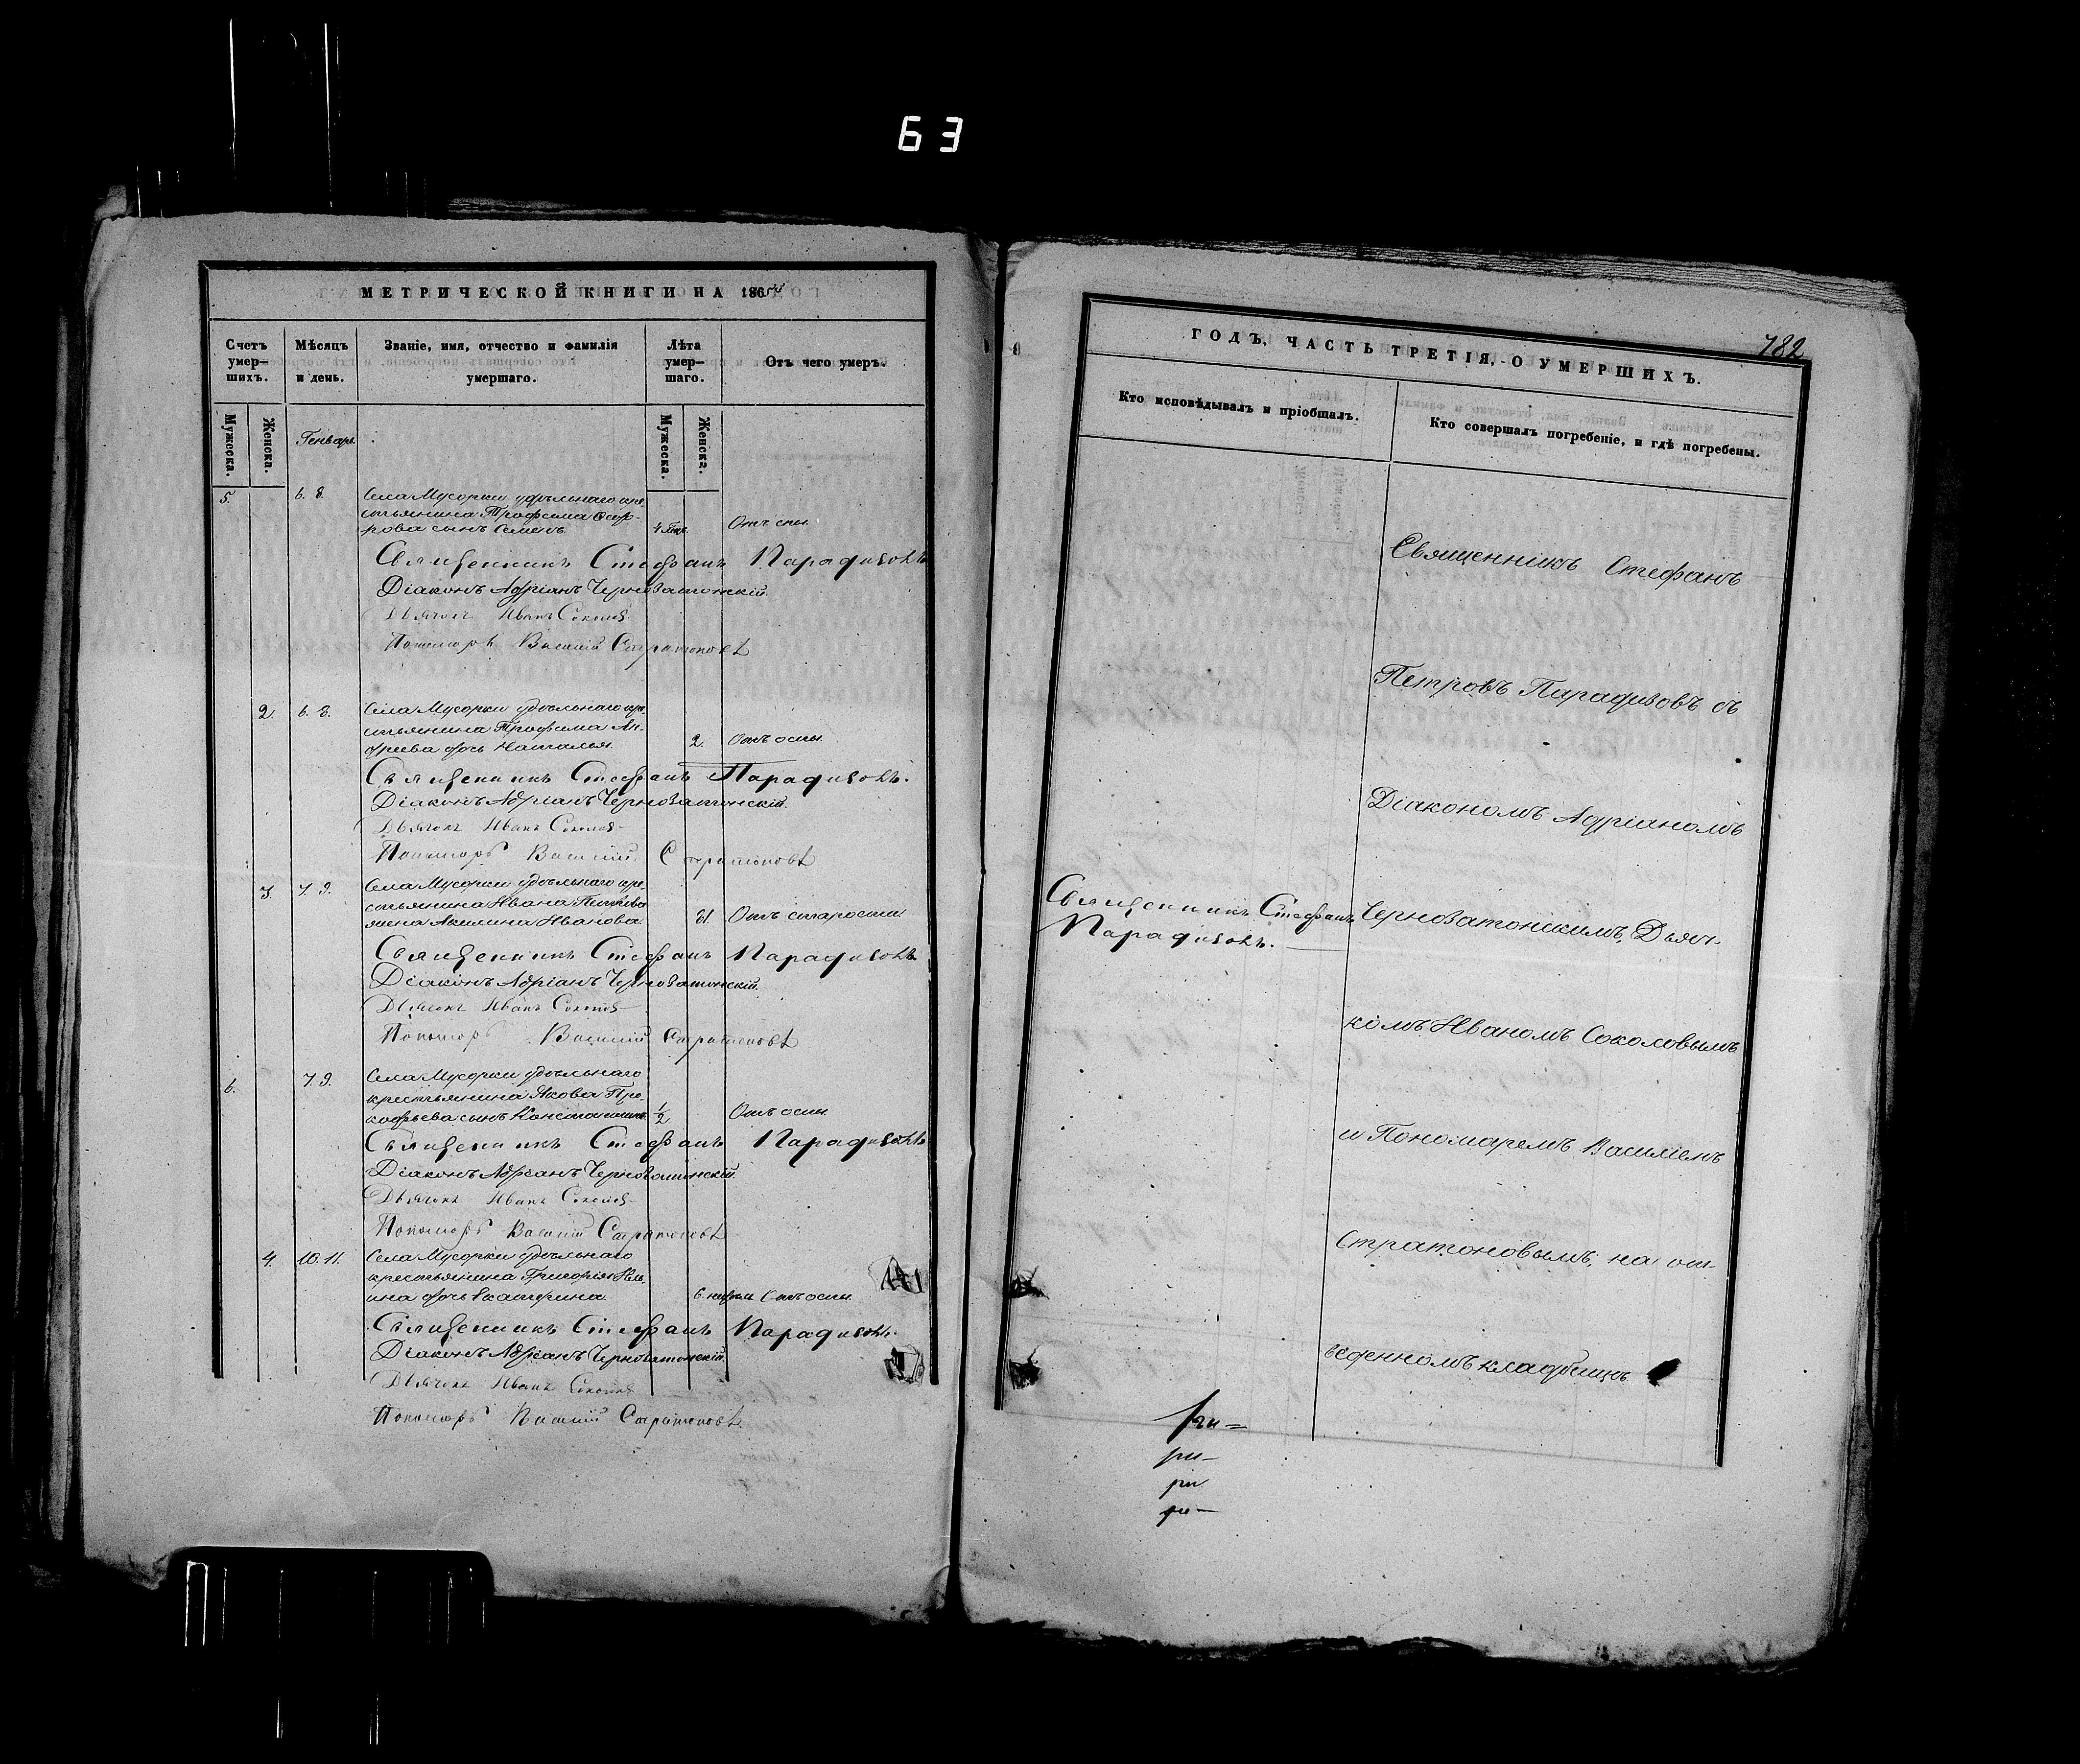 63
МЕТРИЧЕСКОЙ КНИГИ НА 1865й
Счетъ умер-шихъ.
Мѣсяцъ и день.
Званіе, имя, отчество и фамилія умершаго.
Лѣта умер-шаго.
Отъ чего умеръ.
Мужеска.
Женска.
Генварь.
Мужеска.
Женска.
5. 6. 8. Села Мусорки удѣльнаго кре-
стьянина Трофима
рова сынъ Семенъ
Священникъ Стефанъ Парадизовъ
Діаконъ Адріанъ Чернозатонскій.
Дьячекъ Иванъ Соколов
Пономарь Василій Стратоновъ
2. 6. 8. Села Мусорки удѣльнаго кре-
стьянина Трофима Ан-
дреева дочь Наталья. 2. Отъ оспы.
Священникъ Стефанъ Парадизовъ.
Діаконъ Адріанъ Чернозатонскій.
Дьячекъ Иванъ Соколов
Пономарь Василій Стратоновъ
3. 7. 9. Села Мусорки удѣльнаго кре-
стьянина Ивана
жена Акилина Иванова. 81. Отъ старости
Священникъ Стефанъ Парадизовъ
Діаконъ Адріанъ Чернозатонскій.
Дьячекъ Иванъ Соколов
Пономарь Василій Стратоновъ
6. 7. 9. Села Мусорки удѣльнаго
крестьянина Якова Про-
кофьева сынъ Константинъ. 1/2 Отъ оспы
Священникъ Стефанъ Парадизовъ
Діаконъ Адріанъ Чернозатонскій.
Дьячекъ Иванъ Соколов
Пономарь Василій Стратоновъ
4. 10. 11. Села Мусорки удѣльнаго
крестьянина Григорія Иль-
ина дочь Екатерина. 6. недѣль Отъ оспы.
Священникъ Стефанъ Парадизовъ.
Діаконъ Адріанъ Чернозатонскій.
Дьячекъ Иванъ Соколов
Пономарь Василій Стратоновъ
782
ГОДЪ, ЧАСТЬ ТРЕТІЯ, О УМЕРШИХЪ.
Кто исповѣдывалъ и пріобщалъ.
Кто совершалъ погребеніе, и гдѣ погребены.
Священникъ Стефанъ
Парадизовъ.
Священникъ Стефанъ
Петровъ Парадизовъ съ
Діакономъ Адріаномъ
Чернозатонскимъ, Дьяч-
комъ Иваномъ Соколовымъ
и Пономаремъ Василіемъ
Стратоновымъ, на от-
веденномъ кладбищѣ.